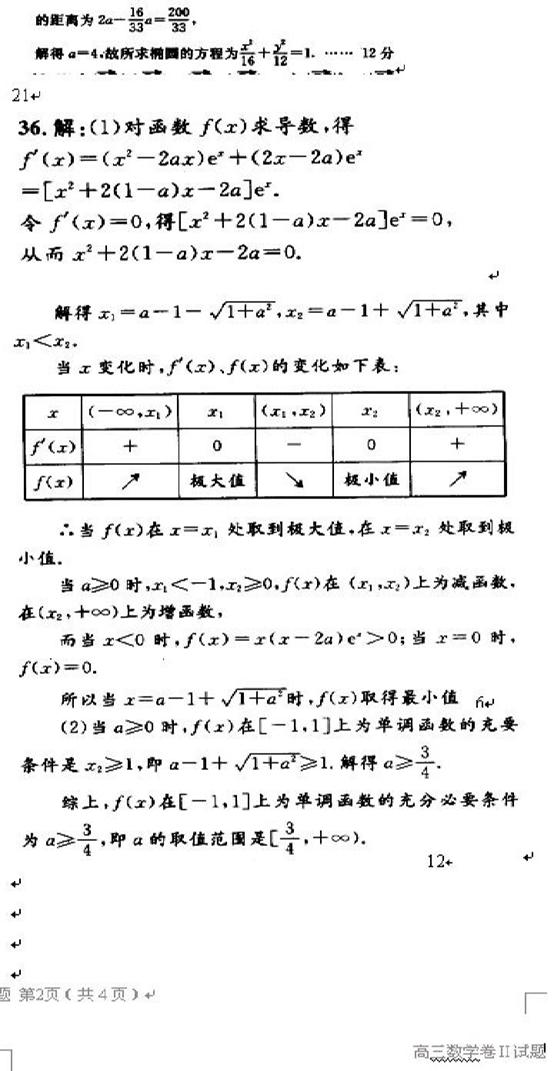 的距离为 2a−16/33a=200/33,
解得 a=4,故所求椭圆的方程为x²/16+y²/12=1. …… 12 分
21
36. 解:(1)对函数 f(x)求导数,得
f′(x)=(x²−2ax)eˣ+(2x−2a)eˣ
=[x²+2(1−a)x−2a]eˣ.
令 f′(x)=0,得[x²+2(1−a)x−2a]eˣ=0,
从而 x²+2(1−a)x−2a=0.
解得 x₁=a−1−√(1+a²),x₂=a−1+√(1+a²),其中
x₁<x₂.
当 x 变化时,f′(x)、f(x)的变化如下表:
x (−∞,x₁) x₁ (x₁,x₂) x₂ (x₂,+∞)
f′(x) + 0 − 0 +
f(x) ↗ 极大值 ↘ 极小值 ↗
∴当 f(x)在 x=x₁ 处取到极大值,在 x=x₂ 处取到极
小值.
当 a≥0 时,x₁<−1,x₂≥0,f(x)在 (x₁,x₂)上为减函数,
在(x₂,+∞)上为增函数,
而当 x<0 时,f(x)=x(x−2a)eˣ>0;当 x=0 时,
f(x)=0.
所以当 x=a−1+√(1+a²)时,f(x)取得最小值
(2)当 a≥0 时,f(x)在[−1,1]上为单调函数的充要
条件是 x₂≥1,即 a−1+√(1+a²)≥1.解得 a≥3/4.
综上,f(x)在[−1,1]上为单调函数的充分必要条件
为 a≥3/4,即 a 的取值范围是[3/4,+∞).
12
题 第2页(共4页)
高三数学卷II试题